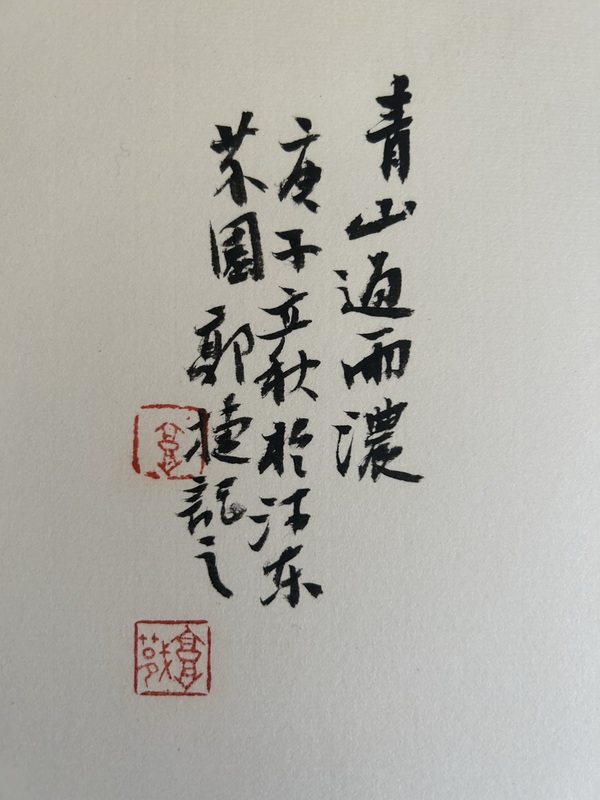 青山過雨濃
庚子立秋於东
園郭捷記之